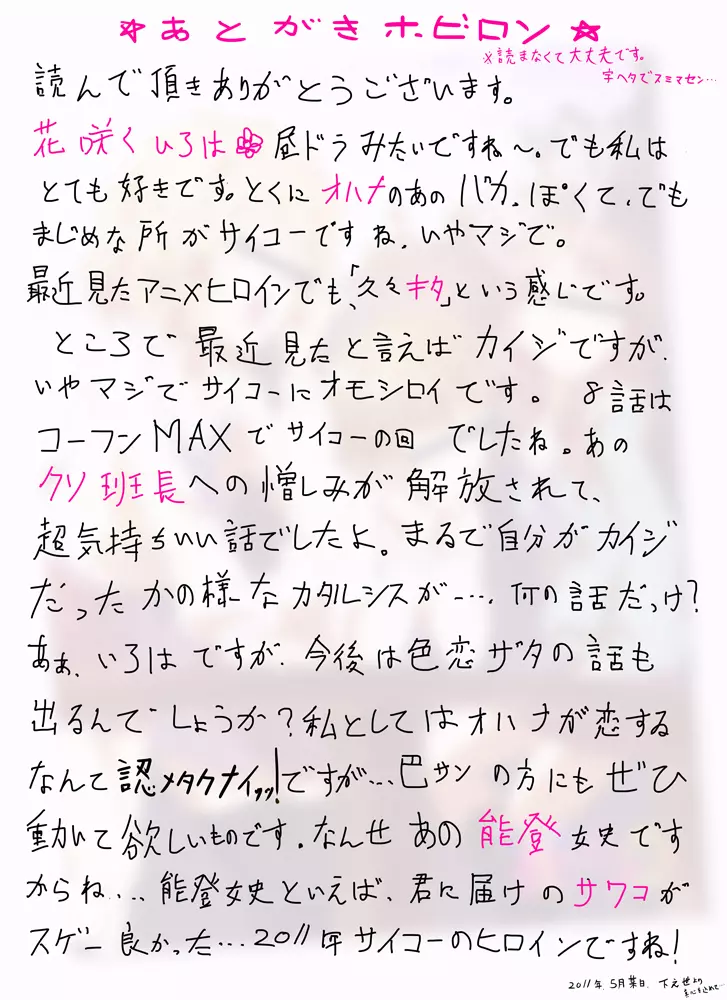 ☆あとがきホビロン☆
※読まなくて大丈夫です。
字ヘタでスミマセン…
読んで頂きありがとうございます。
花咲くいろは 昼ドラみたいですね〜。でも私は
とても好きです。とくにオハナのあのバカっぽくて、でも
まじめな所がサイコーですね、いやマジで。
最近見たアニメヒロインでも、「久々キタ」という感じです。
ところで最近見たと言えばカイジですが、
いやマジでサイコーにオモシロイです。 8話は
コーフンMAXでサイコーの回でしたね。あの
クソ班長への憎しみが解放されて、
超気持ちいい話でしたよ。まるで自分がカイジ
だったかの様なカタルシスが…、何の話だっけ?
あぁ、いろはですが、今後は色恋ザタの話も
出るんでしょうか?私としてはオハナが恋する
なんて認メタクナイッッ!ですが…巴サンの方にもぜひ
動いて欲しいものです。なんせあの能登女史です
からね…、能登女史といえば、君に届けのサワコが
スゲー良かった…2011年サイコーのヒロインですね!
2011年、5月某日、下